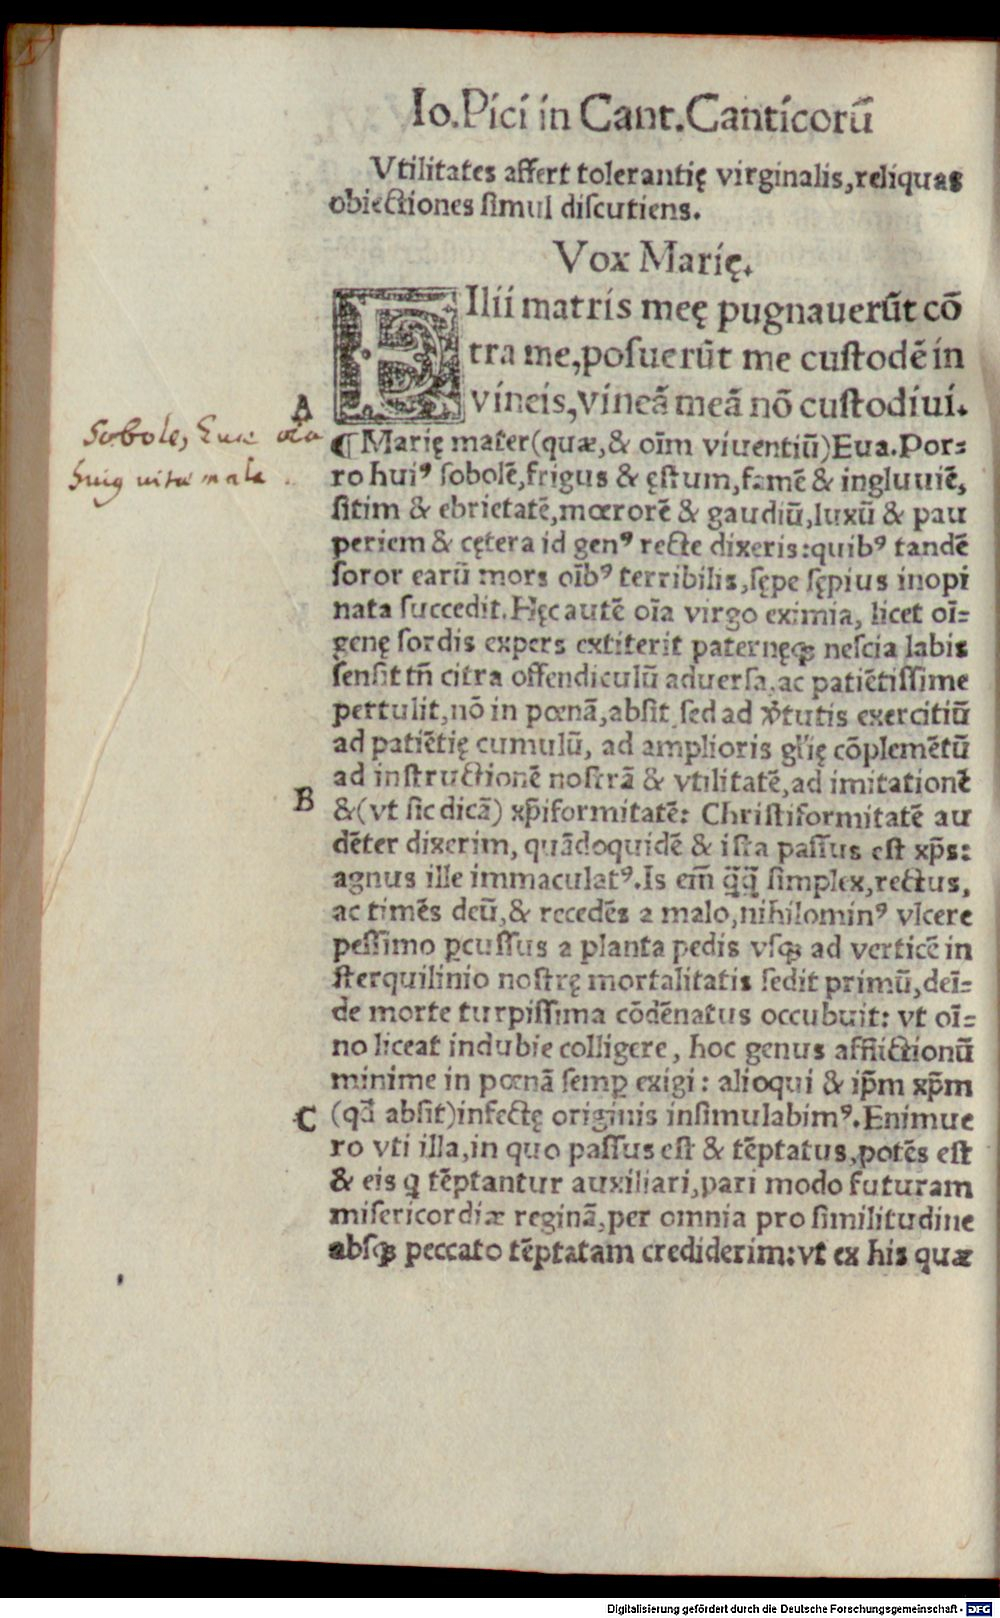 Io.Pici in Cant.Canticorū
Vtilitates affert tolerantię virginalis,reliquas
obiectiones simul discutiens.
Vox Marię.
FIlii matris meę pugnauerūt cō
tra me,posuerūt me custodē in
vineis,vineā meā nō custodiui.
A
¶ Marię mater(quæ,& oīm viuentiū)Eua.Por⸗
ro huiꝰ sobolē,frigus & ęstum,famē & ingluuiē,
sitim & ebrietatē,mœrorē & gaudiū,luxū & pau
periem & cętera id genꝰ recte dixeris:quibꝰ tandē
soror earū mors oībꝰ terribilis,sępe sępius inopi
nata succedit.Hęc autē oīa virgo eximia, licet oī⸗
genę sordis expers extiterit paternęqꝫ nescia labis
sensit tn̄ citra offendiculū aduersa,ac patiētissime
pertulit,nō in pœnā,absit,sed ad v̓tutis exercitiū
ad patiētię cumulū, ad amplioris gl'ię cōplemētū
ad instructionē nostrā & vtilitatē,ad imitationē
B
&(vt sic dicā) xp̄iformitatē: Christiformitatē au
dēter dixerim, quādoquidē & ista passus est xp̄s:
agnus ille immaculatꝰ.Is em̄ q̄q̄ simplex,rectus,
ac timēs deū,& recedēs a malo,nihilominꝰ vlcere
pessimo ꝑcussus a planta pedis vsqꝫ ad verticē in
sterquilinio nostrę mortalitatis sedit primū,deī⸗
de morte turpissima cōdēnatus occubuit: vt oī⸗
no liceat indubie colligere, hoc genus afflictionū
minime in pœnā semꝑ exigi: alioqui & ip̄m xp̄m
C
(qd̄ absit)infectę originis insimulabimꝰ.Enimue
ro vti illa,in quo passus est & tēptatus,potēs est
& eis q tēptantur auxiliari,pari modo futuram
misericordiæ reginā,per omnia pro similitudine
absqꝫ peccato tēptatam crediderim:vt ex his quæ
Sobole, Euæ
vitæ mala
Digitalisierung gefördert durch die Deutsche Forschungsgemeinschaft - DFG